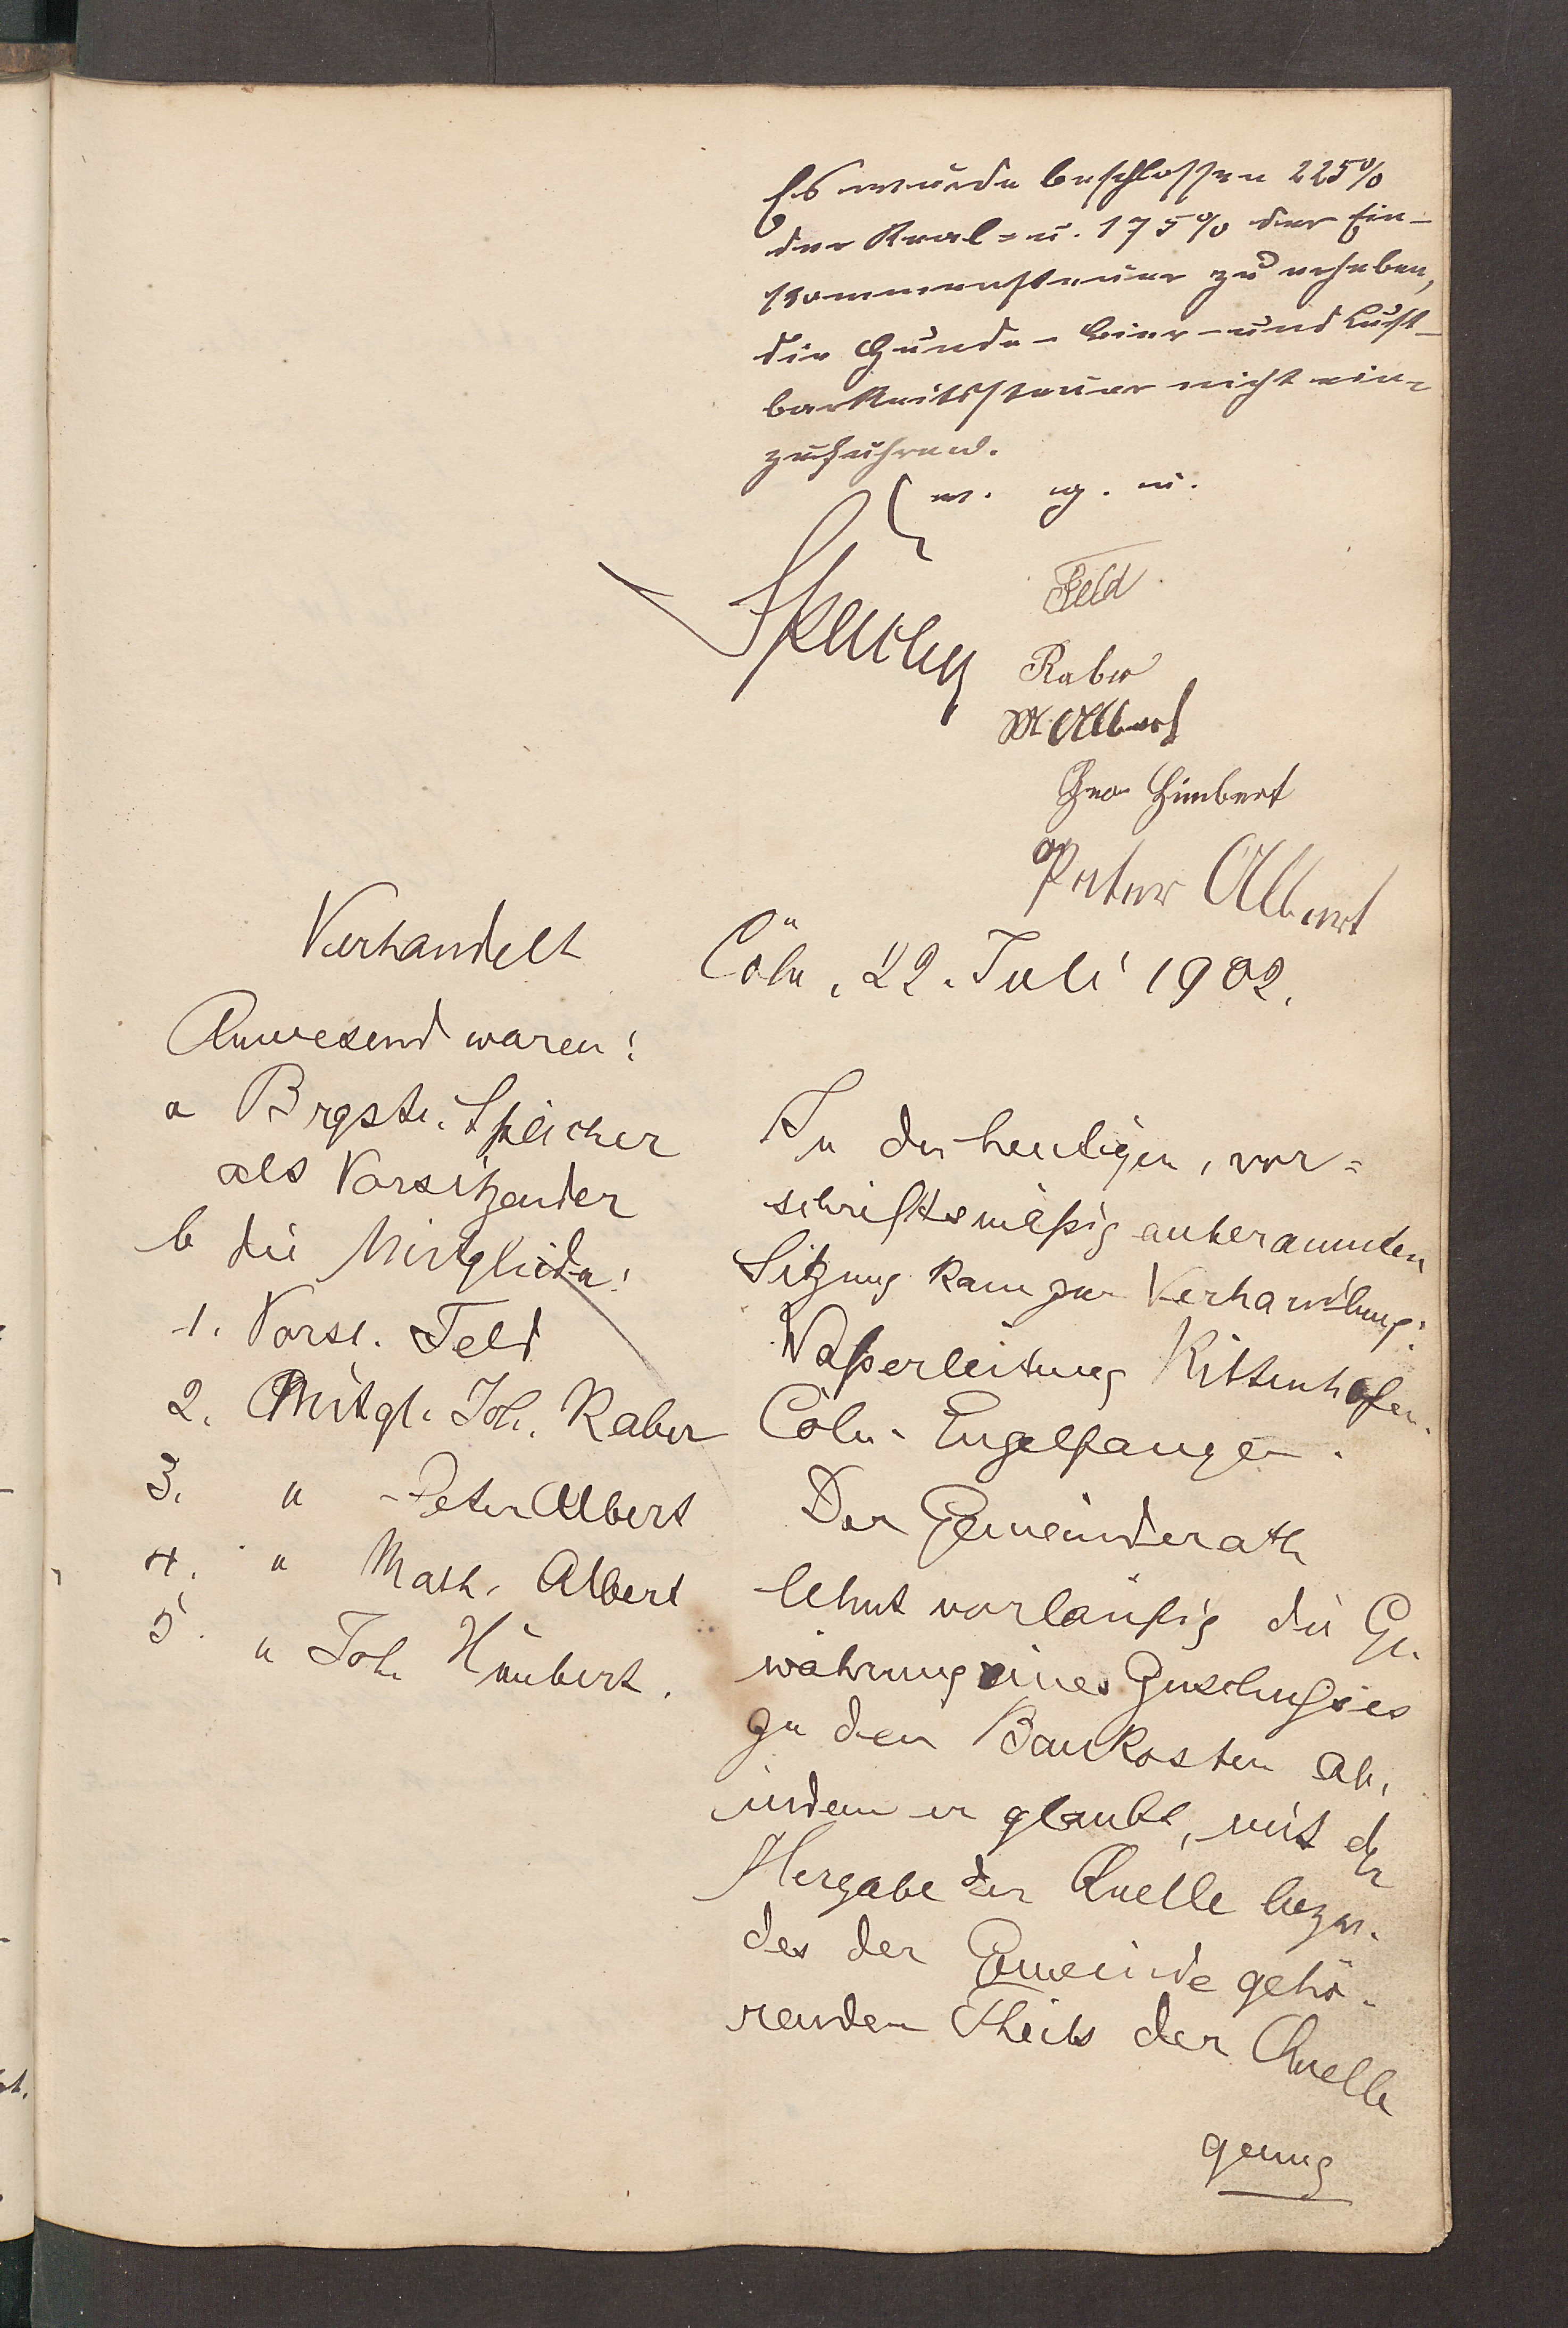 Es wurde beschlossen 225%
der Real= u. 175% der Ein-
kommensteuer zu erheben,
die Hunde- Bier- und Lust-
barkeitssteuer nicht ein=
zuführen.
v. g. u.
Speicher
Feld
Raber
M Albert
Joh Himbert
Peter Albert
Verhandelt Cöln, 22. Juli 1902.
Anwesend waren:
a Brgstr. Speicher
als Vorsitzender
b die Mitglieder:
1. Vorst. Feld
2. Mitgl. Joh. Raber
3. " Peter Albert
4. " Math. Albert
5. " Joh. Himbert.
In der heutigen, vor=
schriftsmäßig anberaumten
Sitzung kam zur Verhandlung:
Waßerleitung Rittenhofen-
Cöln-Engelfangen.
Der Gemeinderath
lehnt vorläufig die Ge-
währung eines Zuschußes
zu den Baukosten ab,
indem er glaubt, mit der
Hergabe der Quelle bezw.
des der Gemeinde gehö-
renden Theils der Quelle
genug